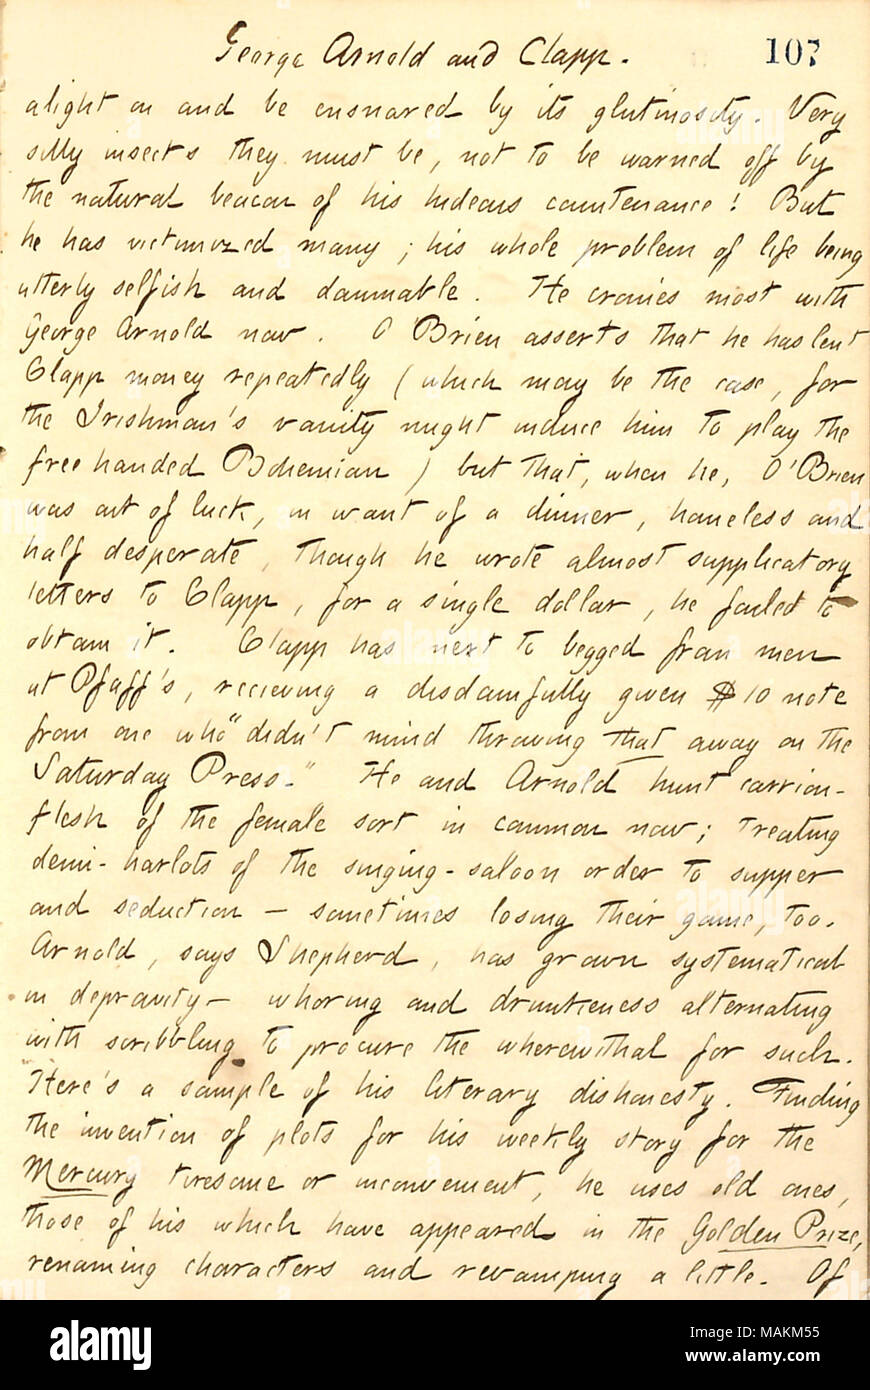 George Arnold and Clapp. 107
alight on and be ensnared by its glutinosity. Very
silly insects they must be, not to be warned off by
the natural beacon of his hideous countenance! But
he has victimized many; his whole problem of life being
utterly selfish and damnable. He cronies most with
George Arnold now. O'Brien asserts that he has lent
Clapp money repeatedly (which may be the case, for
the Irishman's vanity might induce him to play the
free handed Bohemian) but that, when he, O'Brien
was out of luck, in want of a dinner, homeless and
half desperate, though he wrote almost supplicatory
letters to Clapp, for a single dollar, he failed to
obtain it. Clapp has next to begged from men
at Pfaff's, recieving a disdainfully given $10 note
from one who "didn't mind throwing that away on the
Saturday Press." He and Arnold hunt carrion-
flesh of the female sort in common now; treating
demi-harlots of the singing-saloon order to supper
and seduction — sometimes losing their game, too.
Arnold, says Shepherd, has grown systematical
in depravity — whoring and drunkeness alternating
with scribbling to procure the wherewithal for such.
Here's a sample of his literary dishonesty. Finding
the invention of plots for his weekly story for the
Mercury tiresome or inconvenient, he uses old ones,
those of his which have appeared in the Golden Prize,
renaming characters and revamping a little. Of
alamy
Image ID: MAKM55
www.alamy.com